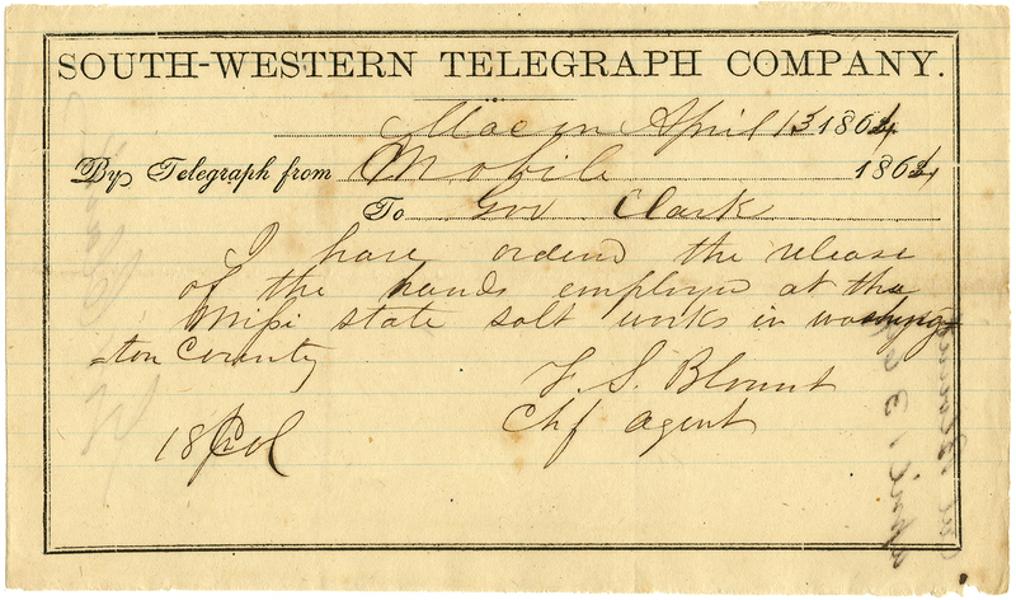 SOUTH-WESTERN TELEGRAPH COMPANY.
Macon April 13 1864
By Telegraph from Mobile 1864
To Gov Clark
I have orderd the release
of the hands employed at the
Missi state salt works in washing
=ton County
F. S. Blount
Chf agent
18 Col